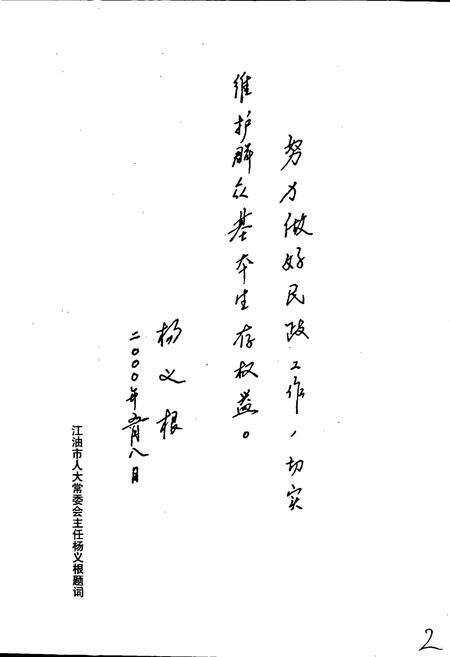 努力做好民政工作，切实
维护群众基本生存权益。
杨义根
二〇〇〇年五月八日
江油市人大常委会主任杨义根题词
2